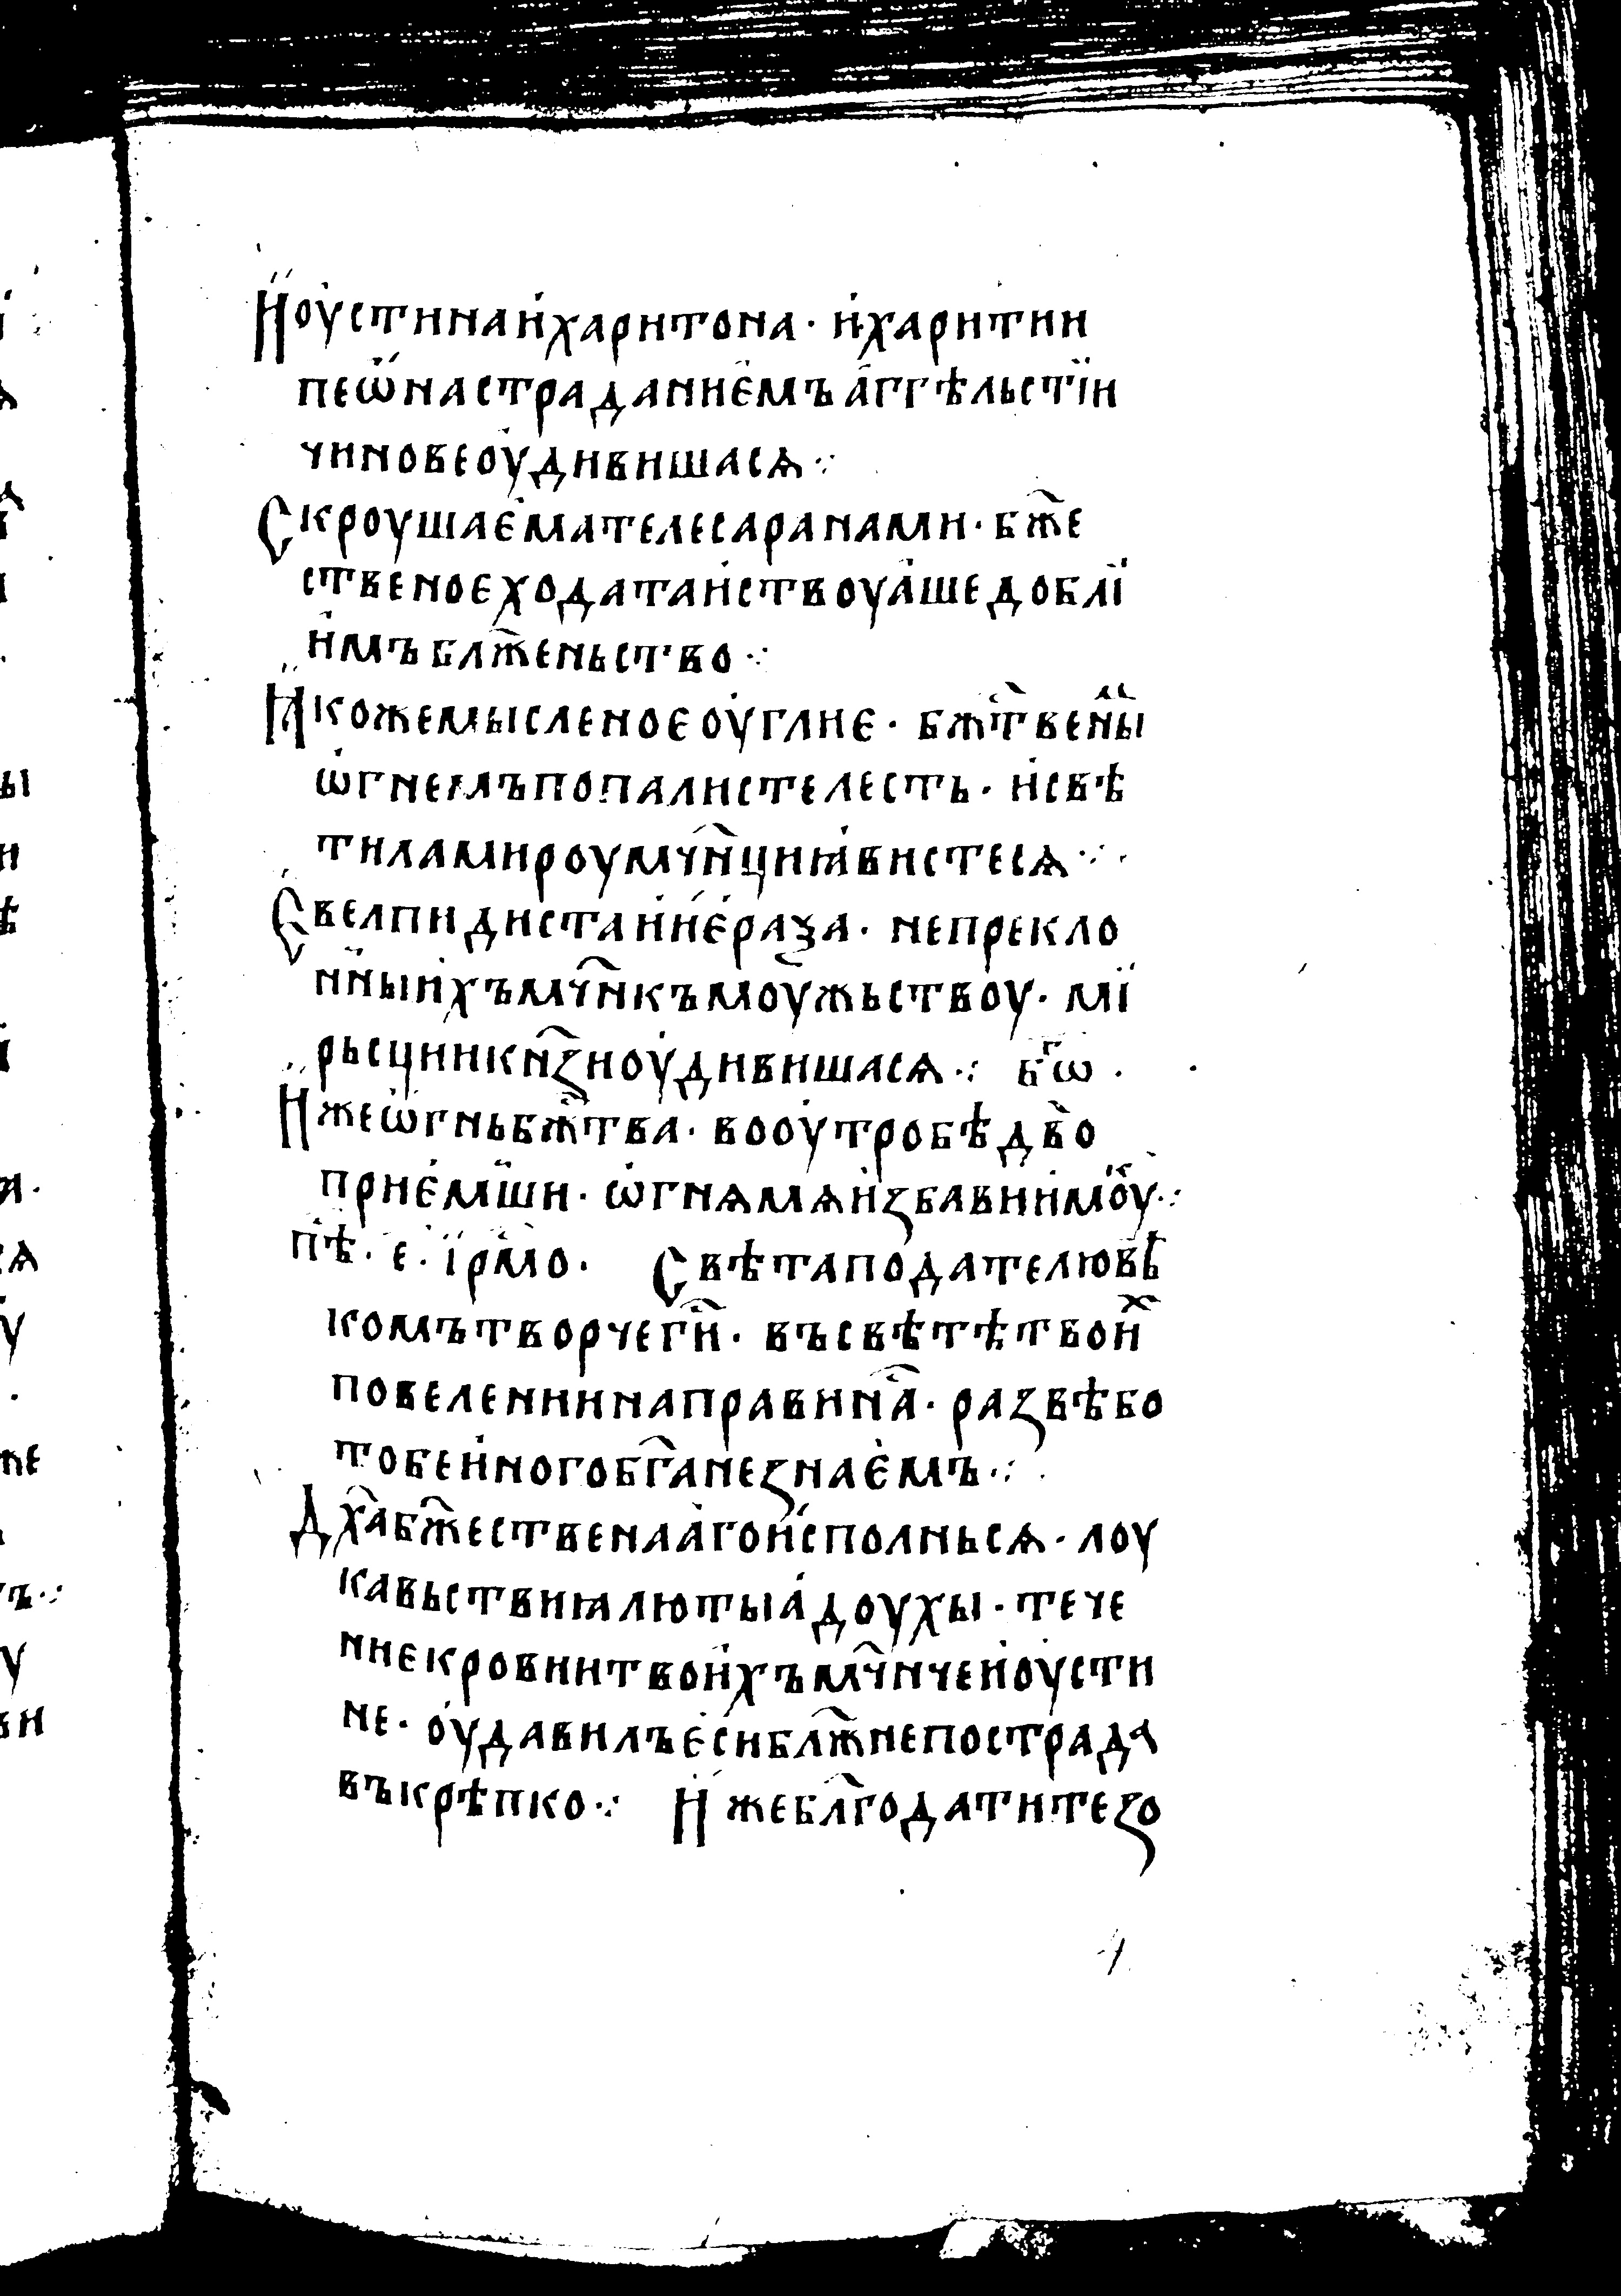 И҆оу҆стинаи҆харитона· и҆харитии
пеѡ҆настраданиє҆мъ а҆ггѣльстїи
чиновеоу҆дивишасѧ⁘
Скроушає҆мателесаранами· бж҃е
ственоєходатаи҆ствоуа҆шедоблї
и҆мъблж҃еньство⁘
Ꙗ҆кожемысленоєоу҆глиє· бжⷭ҇твены҆
ѡ҆гнемъпопалистелесть· и҆свѣ
тиламироумчн҃циꙗ҆вистесѧ⁘
Є҆велпидистаи҆иє҆раѯа· непрекло
нныи҆хъмчн҃къмоужьствоу· мї
рьсциикнѧ҃зиоу҆дивишасѧ⁘ бⷢ҇ѡ·
И҆жеѡ҆гньбжⷭ҇тва· вооу҆тробѣдв҃о
приє҆мши· ѡ҆гнѧмѧи҆збавиимоу⁘
пⷭ҇ѣ·є·їрмⷭ҇о· Свѣтаподателювѣ
комътворчегⷭ҇и· въсвѣтѣтвоиⷯ
повеленииправина҃· развѣбо
тобеи҆ногобг҃анезнає҆мъ⁘
Дх҃абж҃ественаа҆гои҆сполньсѧ· лоу
кавьствиꙗлютыа҆доухы· тече
ниекровиитвои҆хъмчн҃чеи҆оу҆сти
не· оу҆давилъє҆сиблж҃непострада
въкрѣпко⁘ И҆жебл҃годатитезо